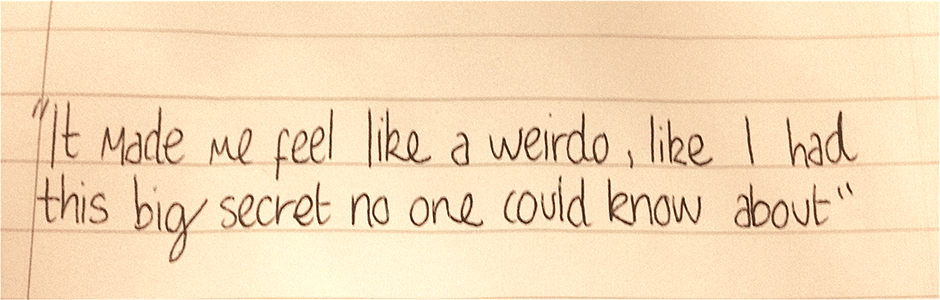 "It made me feel like a weirdo, like I had
this big secret no one could know about"